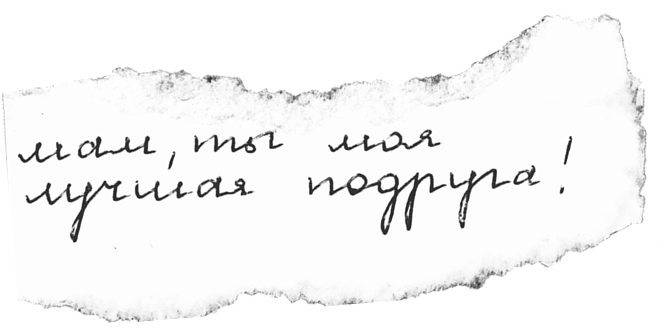 мам, ты моя
лучшая подруга!